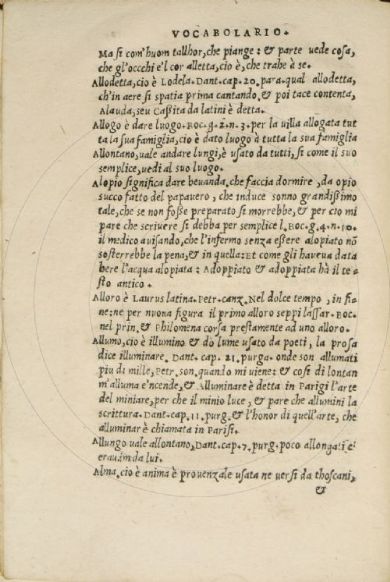 VOCABOLARIO.
Ma si com'huom tallhor, che piange: & parte uede cosa,
che gl'occchi e'l cor alletta, cio è, che trahe à se.
Allodetta, cio è Lodela. Dant. cap. 20. para. qual allodetta,
ch'in aere si spatia prima cantando, & poi tace contenta,
Alauda, seu Caßita da latini è detta.
Allogo è dare luogo. Boc. g. 2. n. 3. per la uilla allogata tut
ta la sua famiglia, cio è dato luogo à tutta la sua famiglia
Allontano, uale andare lungi, è usato da tutti, si come il suo
semplice, uedi al suo luogo.
Alopio significa dare beuanda, che faccia dormire, da opio
succo fatto del papauero, che induce sonno grandißimo
tale, che se non foße preparato si morrebbe, & per cio mi
pare che scriuere si debba per semplice l. Boc. g. 4. n. 10.
il medico auisando, che l'infermo senza eßere alopiato nō
sosterrebbe la pena, & in quella: Et come gli haueua data
bere l'acqua alopiata: Adoppiato & adoppiata hà il te-
sto antico.
Alloro è Laurus latina. Petr. canz. Nel dolce tempo, in fi-
ne: ne per nuoua figura il primo alloro seppi lassar. Boc.
nel prin. & Philomena corsa prestamente ad uno alloro.
Allumo, cio è illumino & do lume usato da poeti, la prosa
dice illuminare. Dant. cap. 21. purga. onde son allumati
piu di mille, Petr. son. quando mi uiene: & cosi di lontan
m'alluma e'ncende, & Alluminare è detta in Parigi l'arte
del miniare, per che il minio luce, & pare che allumini la
scrittura. Dant. cap. 11. purg. & l'honor di quell'arte, che
alluminar è chiamata in Parisi.
Allungo uale allontano, Dant. cap. 7. purg. poco allongati c'
erauam da lui.
Alma, cio è anima è prouenzale usata ne uersi da thoscani,
&